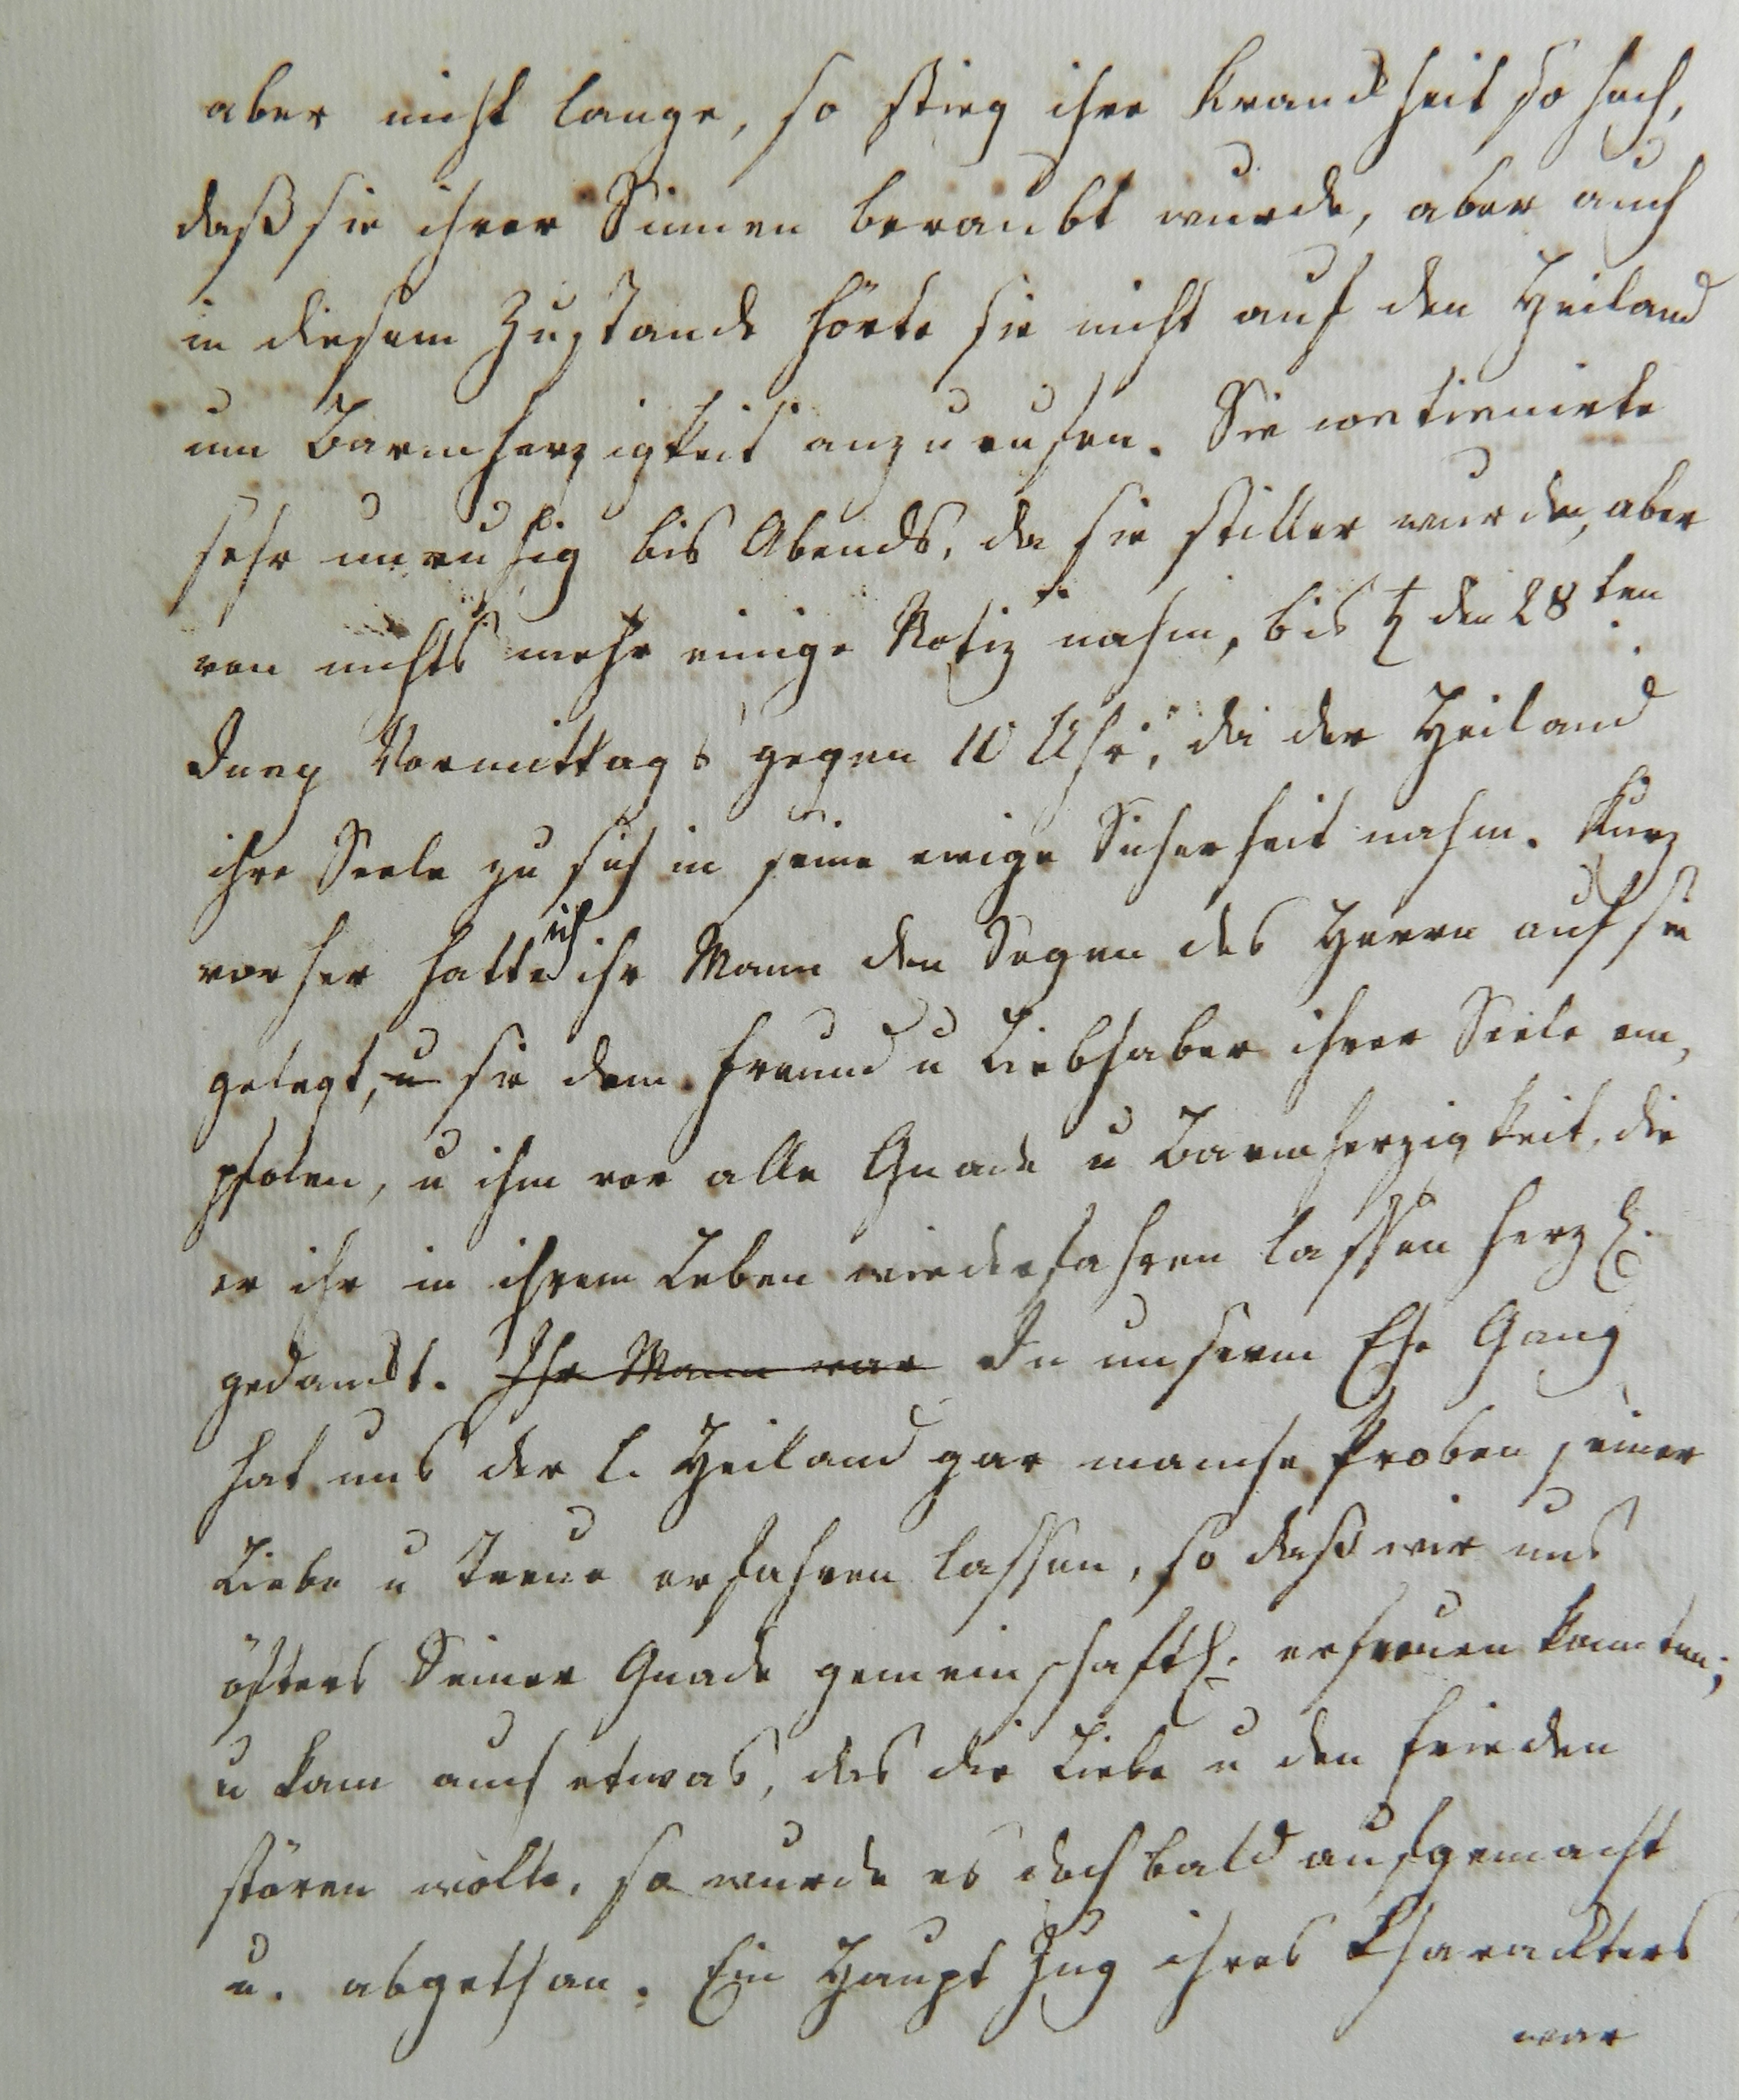 aber nicht lange, so stieg ihre Kranckheit so hoch,
daß sie ihrer Sinnen beraubt wurde, aber auch
in diesem Zustande hörte sie nicht auf den Heiland
um Barmherzigkeit anzurufen. Sie continuirte
sehr unruhig bis Abends, da sie stiller wurde, aber
von nichts mehr einige Notiz nahm, bis ♃ den 28ten
Vormittags gegen 10 Uhr, da der Heiland
ihre Seele zu sich in seine ewige Sicherheit nahm. Kurz
vorher hatte ich ihr Mann den Segen des Herrn auf sie
gelegt, u sie dem Freund u Liebhaber ihrer Seele em,
pfolen, u ihm vor alle Gnade u Barmherzigkeit, die
er ihr in ihrem Leben wiederfahren lassen herzl.
gedanckt. Ihr Mann war In unserm Ehe Gang
hat uns der l. Heiland gar manche Proben seiner
Liebe u Treue erfahren lassen, so daß wir uns
öfters Seiner Gnade gemeinschaftl. erfreuen konnten;
u kam auch etwas, das die Liebe u den Frieden
stören wolte, so wurde es doch bald ausgemacht
u. abgethan. Ein Haupt Zug ihres Charackters
war